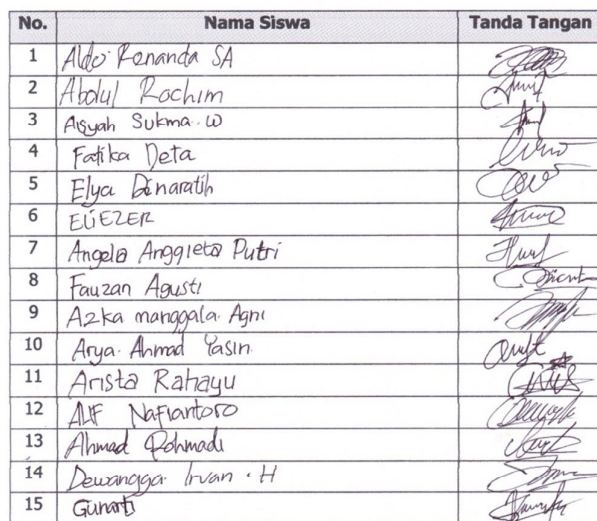 No. Nama Siswa Tanda Tangan
1 Aldo Renanda SA
2 Abdul Rochim
3 Aisyah Sukma. W
4 Fatika Deta
5 Elya Dinaratih
6 ELIEZER
7 Angela Anggieta Putri
8 Fauzan Agusti
9 Azka manggala. Agni
10 Arya. Ahmad Yasin.
11 Arista Rahayu
12 ALIF Nafiantoro
13 Ahmad Rohmadi
14 Dewangga Irvan . H
15 Gunarti